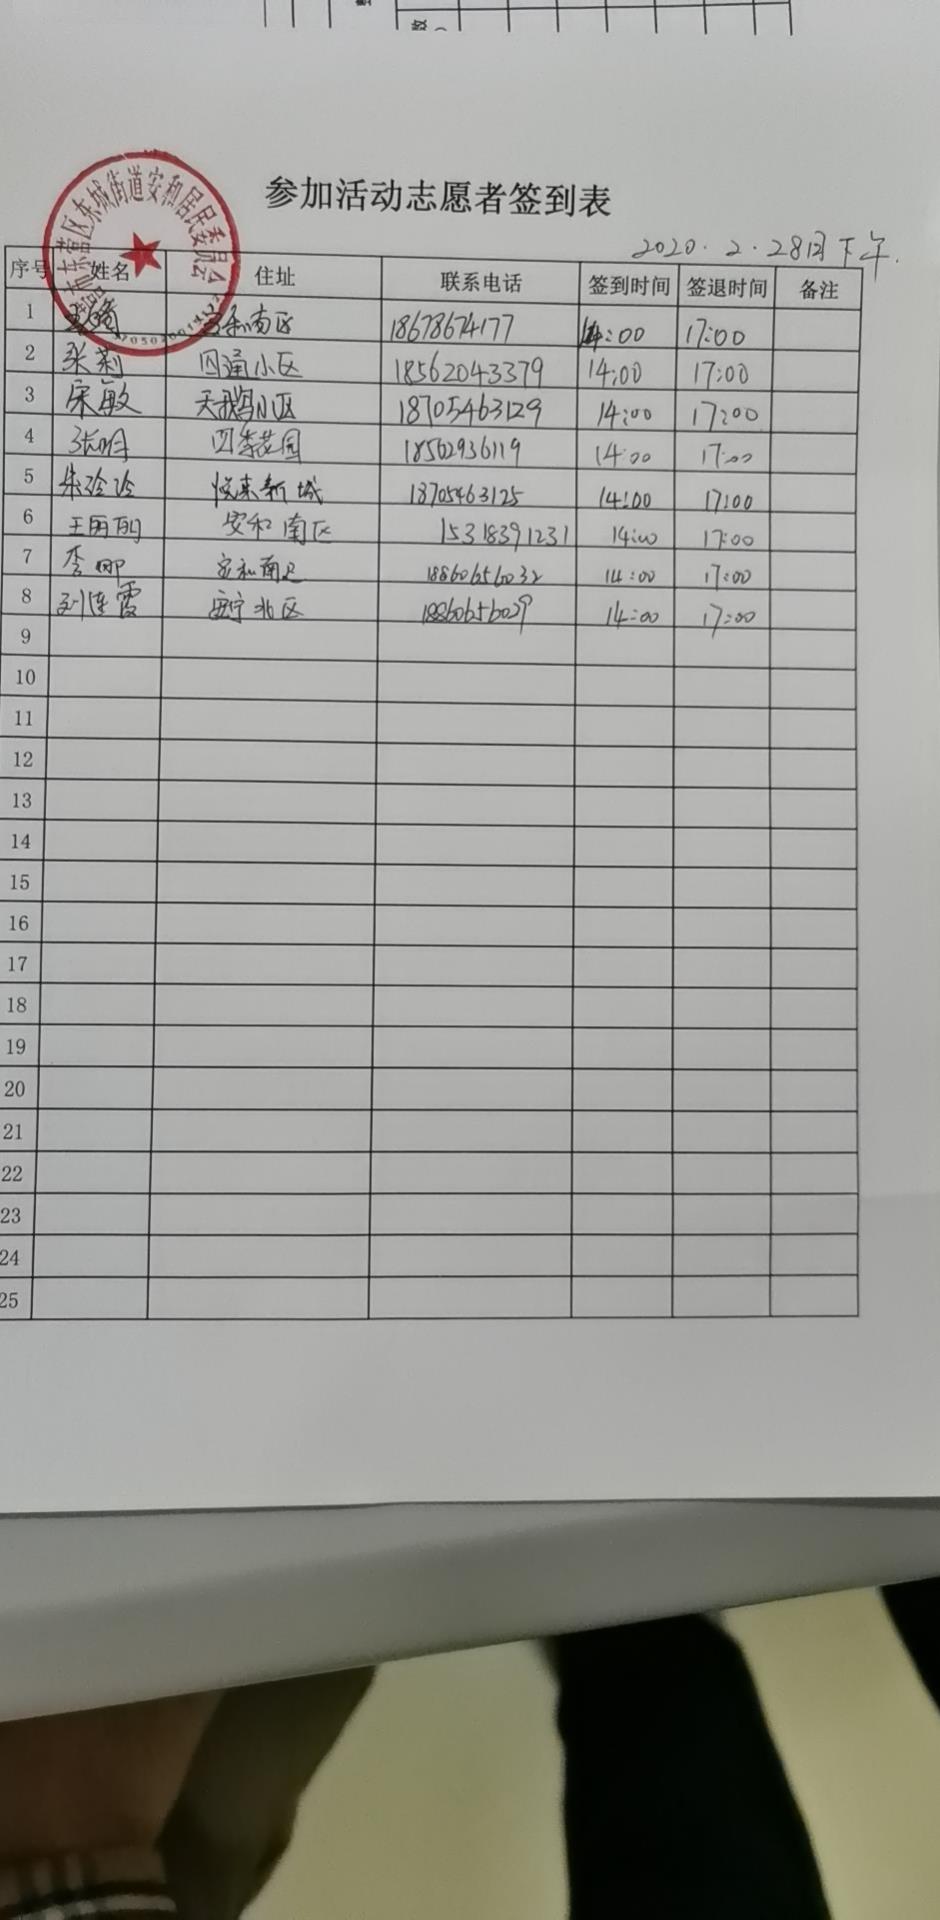 参加活动志愿者签到表
2020.2.28日下午.
东营区东城街道安和居民委员会
序号 姓名 住址 联系电话 签到时间 签退时间 备注
1 安和南区 18678674177 14:00 17:00
2 张莉 四通小区 18562043379 14:00 17:00
3 宋敏 天鹅小区 18705463129 14:00 17:00
4 张明 四季花园 18562936119 14:00 17:00
5 朱玲玲 悦来新城 18705463125 14:00 17:00
6 王丽丽 安和南区 15318391231 14:00 17:00
7 李娜 安和南区 18860656032 14:00 17:00
8 刘连霞 安宁北区 18860656029 14:00 17:00
9
10
11
12
13
14
15
16
17
18
19
20
21
22
23
24
25